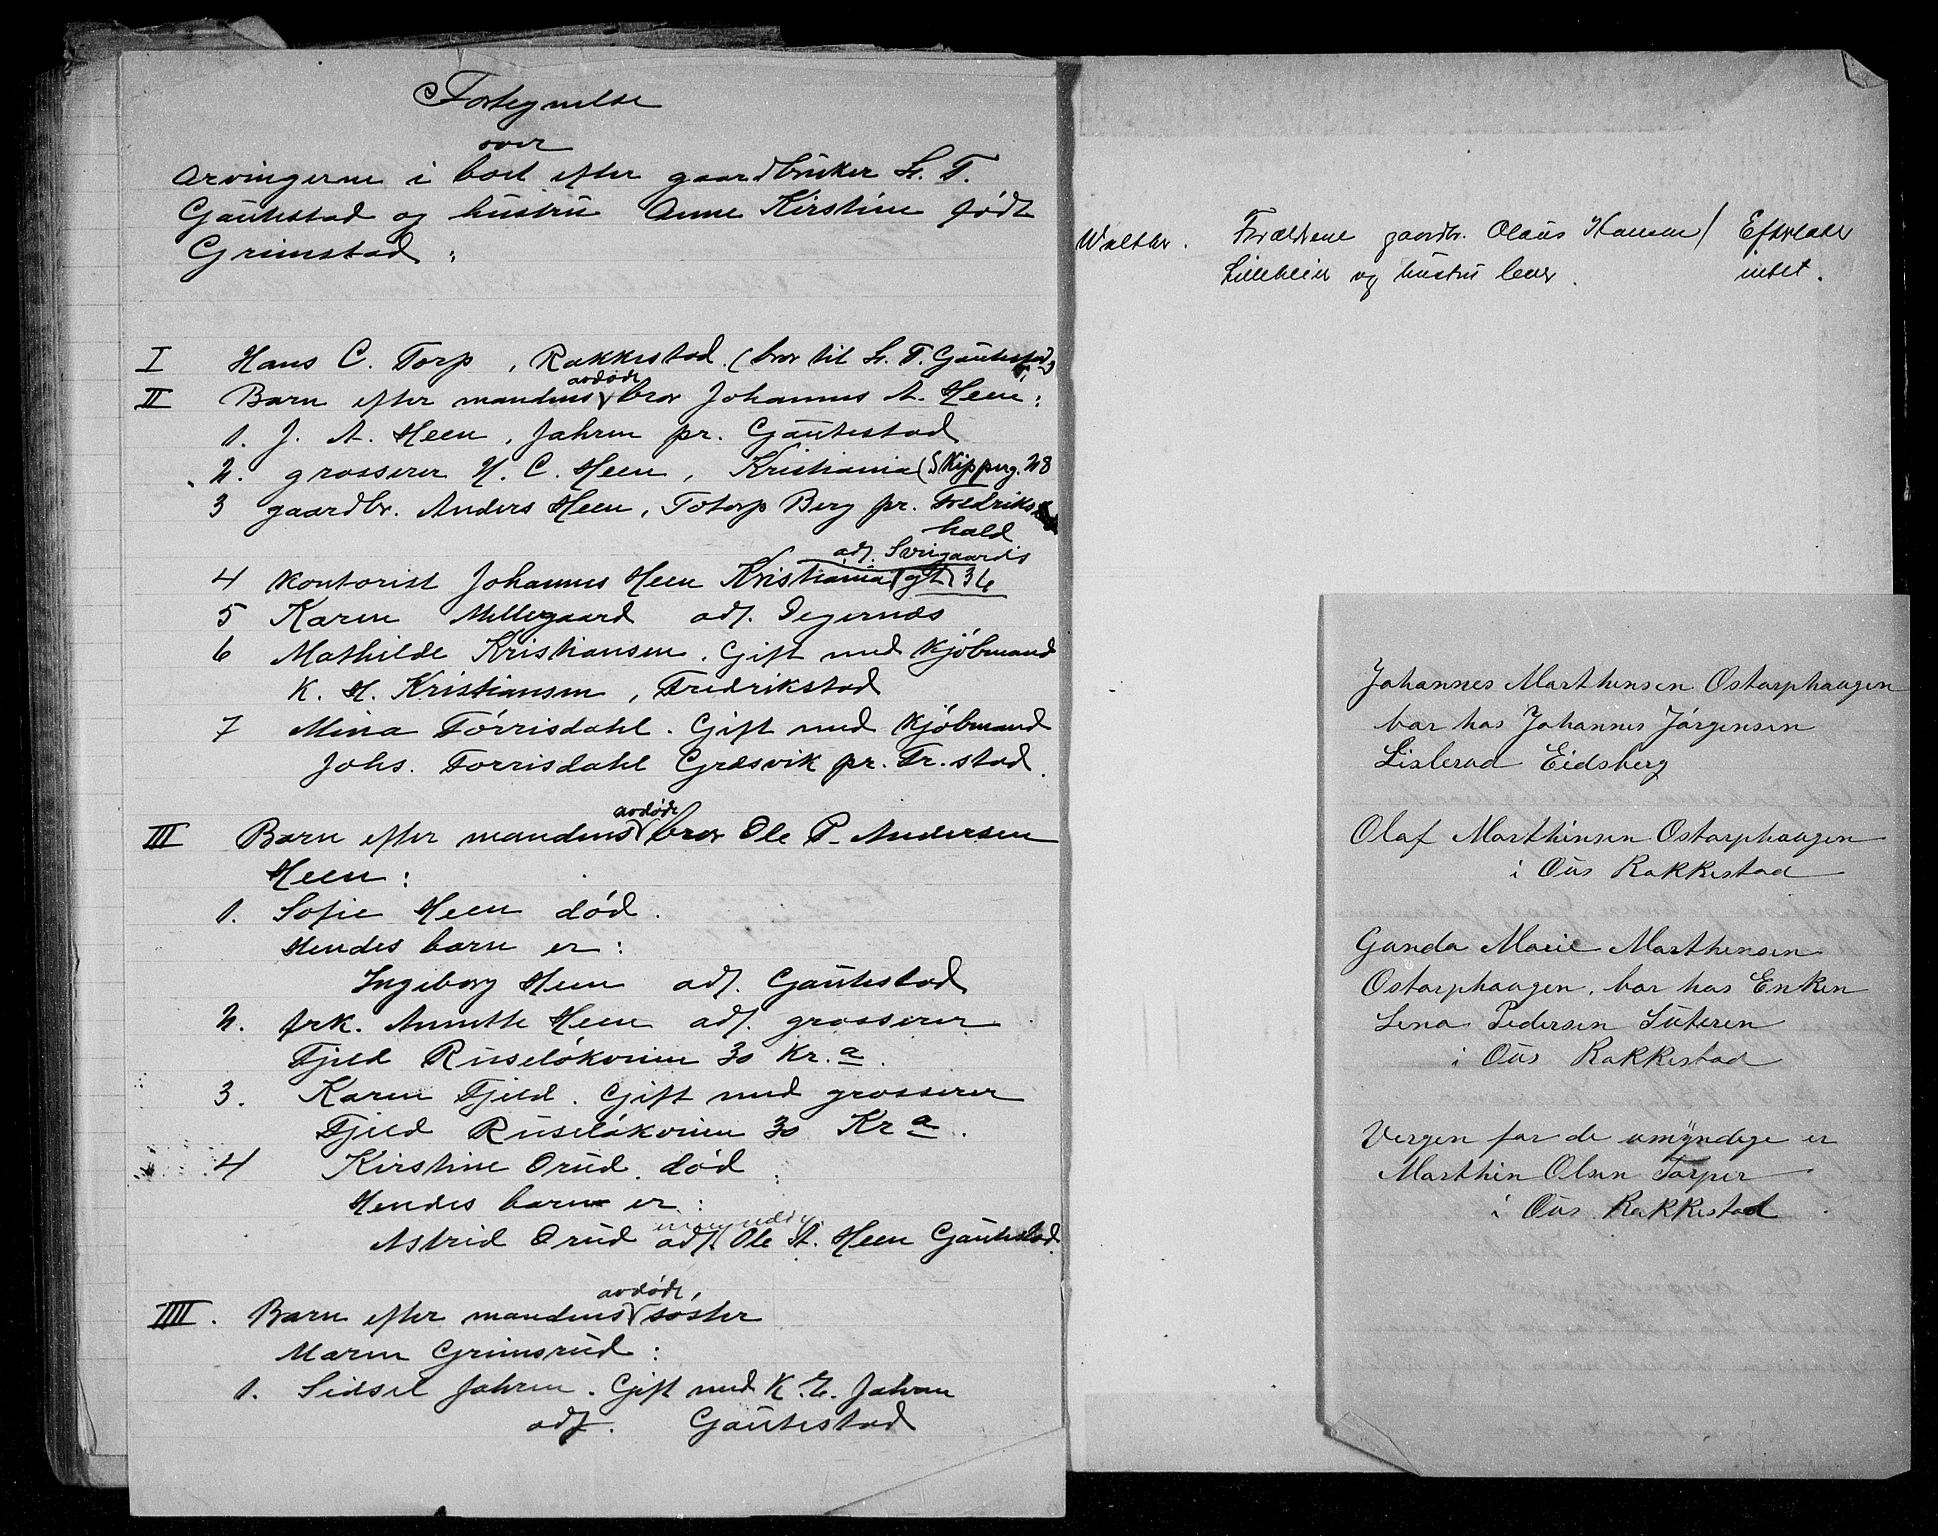 Fortegnelse
over
Arvingerne i boet efter gaardbruker L. T.
Gautestad og hustru Anne Kirstine født
Grimstad :
I Hans C. Torp , Rakkestad. (bror til L. T. Gautestad)
II Barn efter mandens avdøde bror Johannes A. Heen :
1. J. A. Heen , Jahren pr. Gautestad
2. grosserer H. C. Heen , Kristiania (Skipperg. 28
3 gaardbr. Anders Heen , Totorp Berg pr. Fredriks
hald
4 Kontorist Johannes Heen Kristiania adr. Sverigaards
gt 36
5 Karen Millegaard adr. Degernæs
6 Mathilde Kristiansen . Gift med Kjøbmand
K. H. Kristiansen , Fredrikstad
7 Mina Tørrisdahl . Gift med Kjøbmand
Johs. Torrisdahl Græsvik pr. Fr.stad.
III Barn efter mandens avdøde bror Ole P. Andersen
Heen :
1. Sofie Heen død.
Hendes barn er :
Ingeborg Heen adr. Gautestad
2. frk. Annette Heen adr. grosserer
Fjeld Ruseløkveien 30 Kr.a
3. Karen Fjeld . Gift med grosserer
Fjeld Ruseløkveien 30 Kr a.
4 Kirstine Orud . død
Hendes barn er :
umyndig
Astrid Orud adr. Ole A. Heen Gautestad.
IIII. Barn efter mandens avdøde søster
Maren Grimsrud :
1. Sidsel Jahren . Gift med K. E. Jahren
adr. Gautestad
Walther . Forældrene gaardbr. Olaus Hansen / Efterlater
Lilleheier og hustru lever . intet .
Johannes Marthinsen Ostorphaugen
bor hos Johannes Jørgensen
Lislerud Eidsberg
Olaf Marthinsen Ostorphaugen
i Øus Rakkestad
Ganda Marie Marthinsen
Ostorphaugen, bor hos Enken
Lina Pedersen Suteren
i Øus Rakkestad
Vergen for de umyndige er
Marthin Olsen Torper
i Øus Rakkestad .